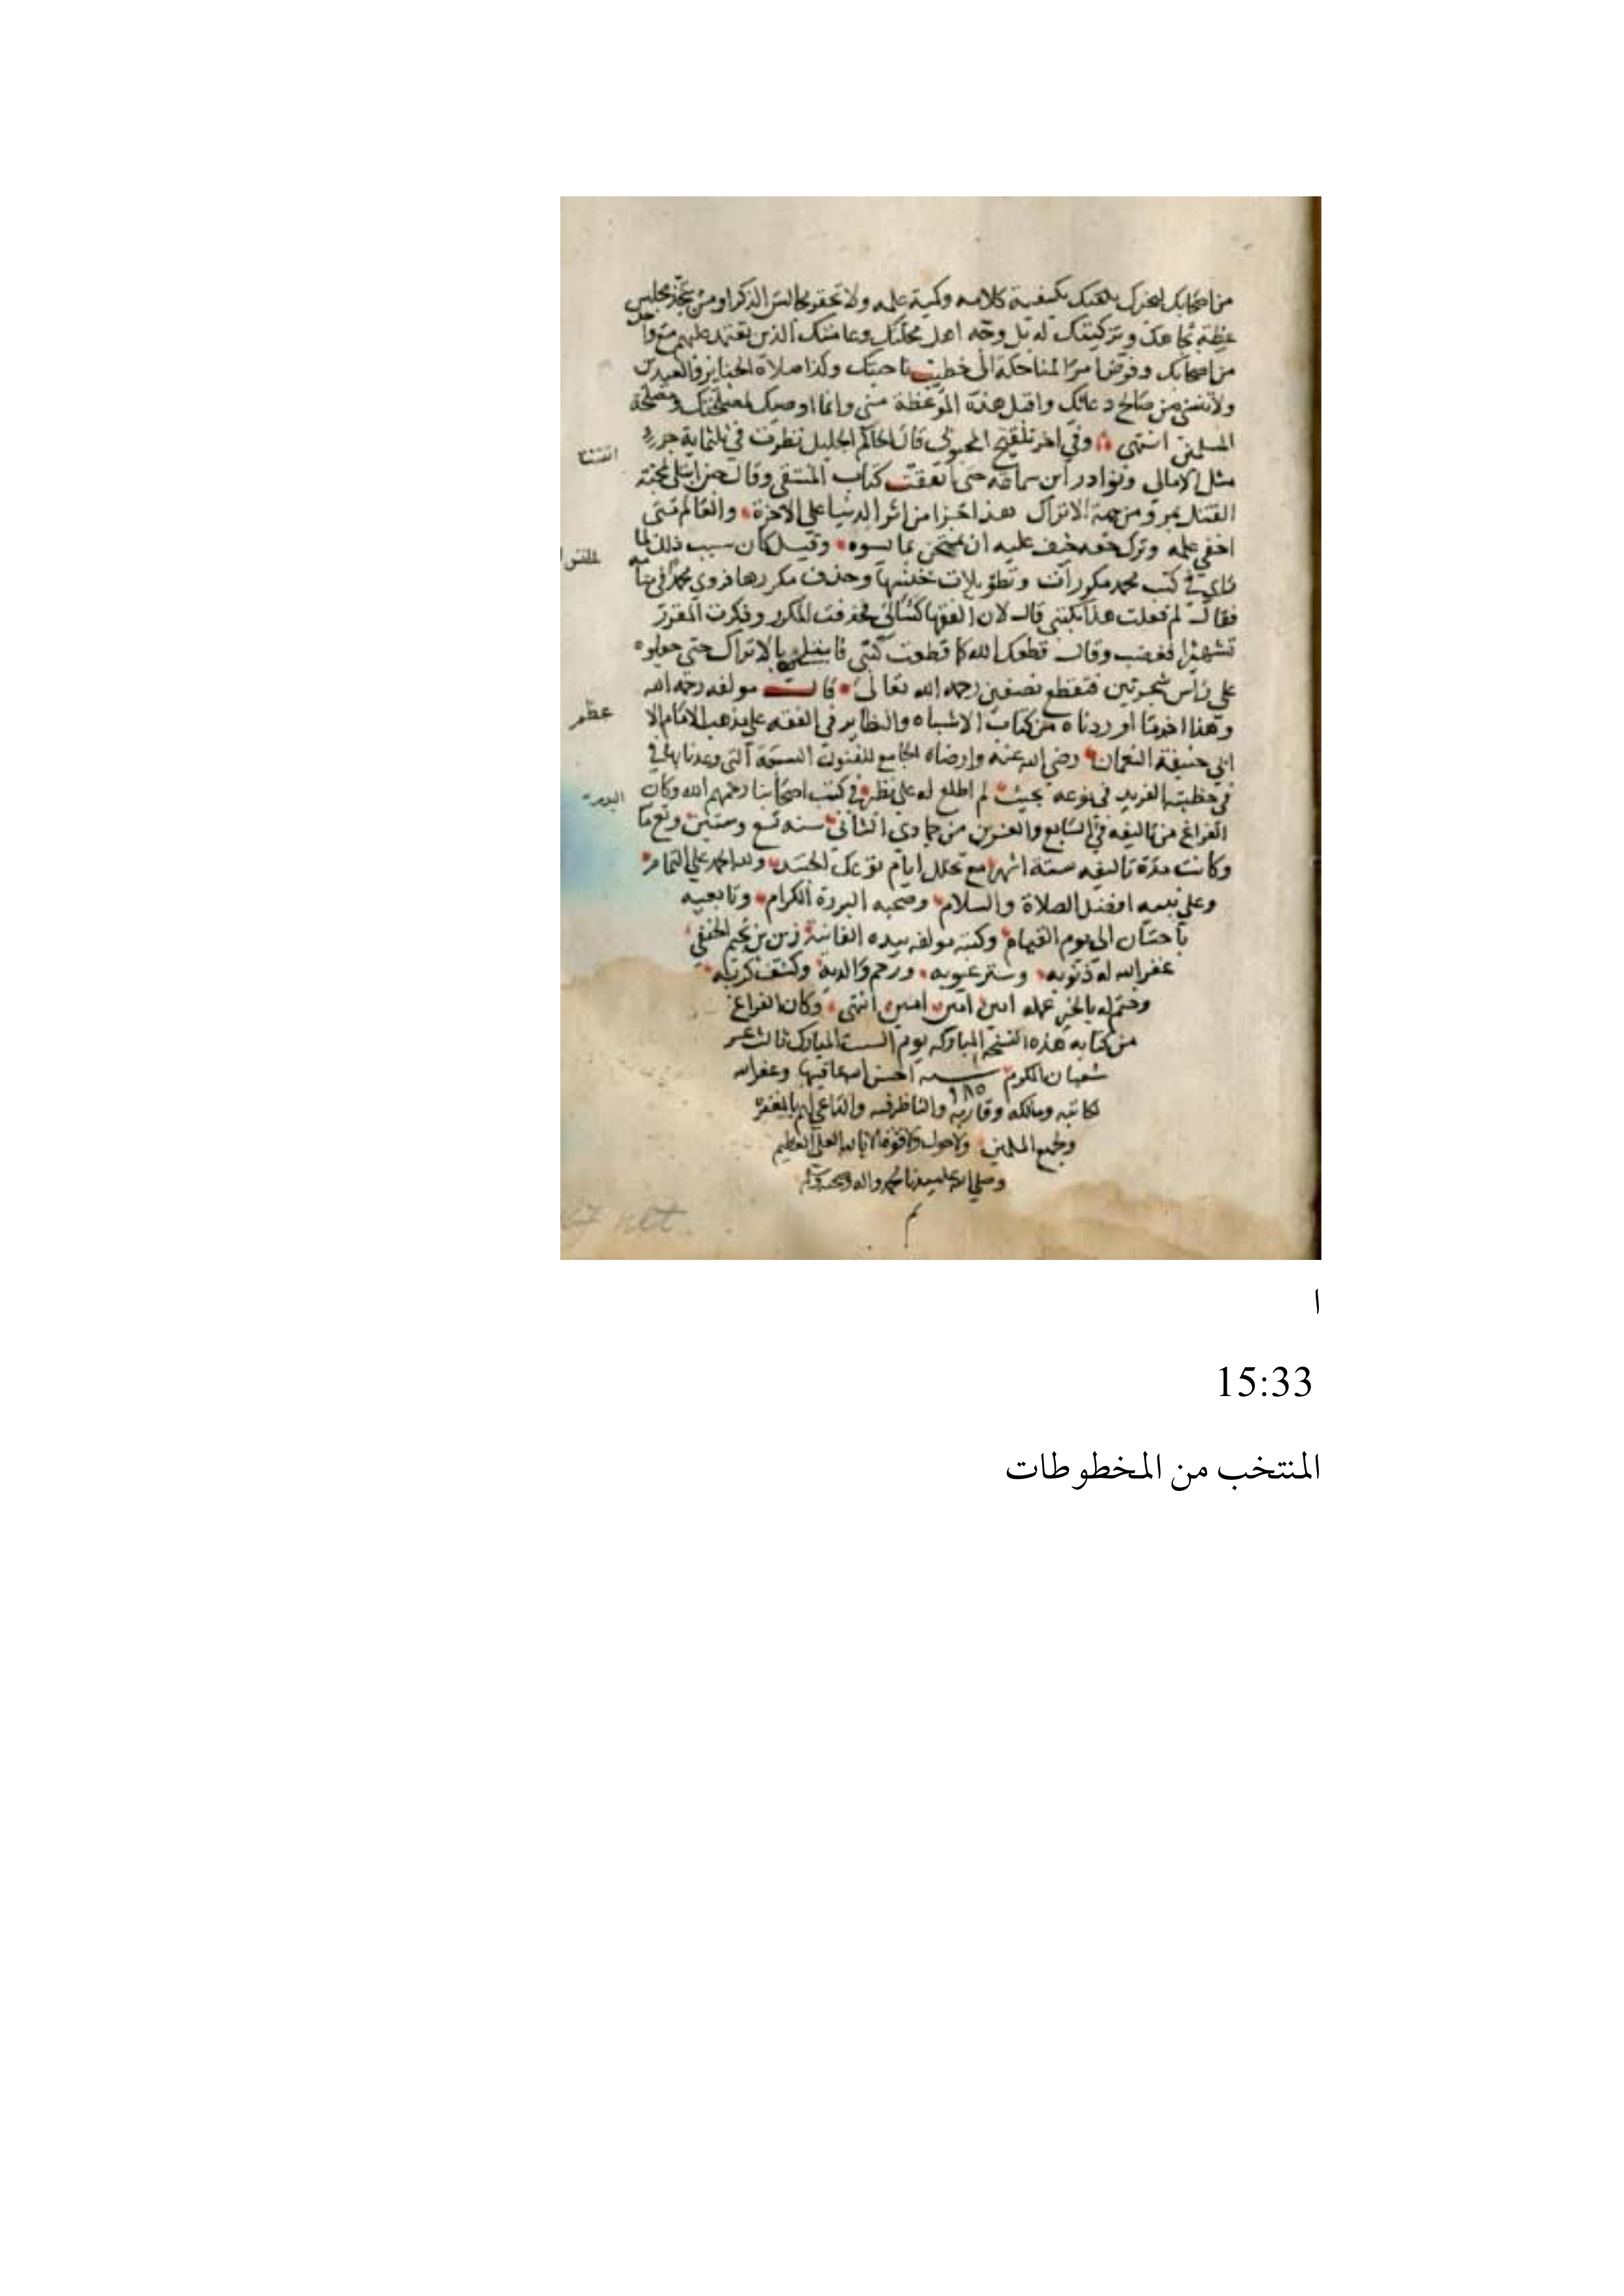 من اصحابك ليخبرك بكيفية كلامه وكمية علمه ولا تحضر مجالس الذكر او من يتخذ مجلس
عظة بجاهك وتزكيتك له بل وجه اهل محلتك وعامتك الذين تعتمد عليهم مع واحد
من اصحابك وفوض امر المناكحة الى خطيب ناحيتك وكذا صلاة الجنايز والعيدين
ولا تنسني من صالح دعائك واقبل هذه الموعظة مني وانما اوصيك لمصلحتك ومصلحة
المسلمين انتهى وفي اخر تلقيح المحبوبي قال الحاكم الجليل نظرت في ثلثماية جزء
مثل الامالي ونوادر ابن سماعة حتى كتاب المنتقى وقال حين ابتلي بمحنة
القتل بمرو من جهة الاتراك هذا جزا من اثر الدنيا على الاخرة والعالم متى
اخفى علمه وترك حقه خيف عليه ان يمتحن بما يسوه وقيل كان سبب ذلك لما
راى في كتب محمد مكررات وتطويلات وحذف مكررها فروى محمدا في منامه
فقال لم فعلت هذا بكتبي قال لان الفقها كسالى فحذفت المكرر وذكرت المقرر
فغضب وقال قطعك الله كما قطعت كتبي فابتلي بالاتراك حتى جعلوه
على راس شجرتين فتقطع نصفين رحمه الله تعالى قال مولفه رحمه الله
وهذا اخر ما اوردناه من كتاب الاشباه والنظاير في الفقه على مذهب الامام الا
عظم
ابي حنيفة النعمان رضي الله عنه وارضاه الجامع للفنون السبعة التي وعدنا بها في
في خطبته الفريد في نوعه بحيث لم اطلع له على نظير في كتب اصحابنا رحمهم الله وكان
الفراغ من تاليفه في السابع والعشرين من جمادى الثاني سنه تسع وستين وتسعما
وكانت مدة تاليفه ستة اشهر مع تخلل ايام توعك الجسد ولله الحمد على التمام
وعلى نبيه افضل الصلاة والسلام وصحبه البررة الكرام وتابعيه
باحسان الى يوم القيام وكتبه مولفه بيده الفانية زين بن نجيم الحنفي
غفر الله له ذنوبه وستر عيوبه ورحم والديه وكشف كربه
وختم له بالخير عمله امين امين امين انتهى وكان الفراغ
من كتابه هذه النسخه المباركه يوم السبت المبارك ثالث عشر
شعبان المكرم سنه ٩٨٥ احسن الله عاقبتها وغفر الله
لكاتبه ومالكه وقاريه والناظر فيه والداعي لهم بالمغفره
ولجميع المسلمين ولا حول ولا قوة الا بالله العلي العظيم
وصلى الله على سيدنا محمد واله وصحبه وسلم
تم
ا
15:33
المنتخب من المخطوطات